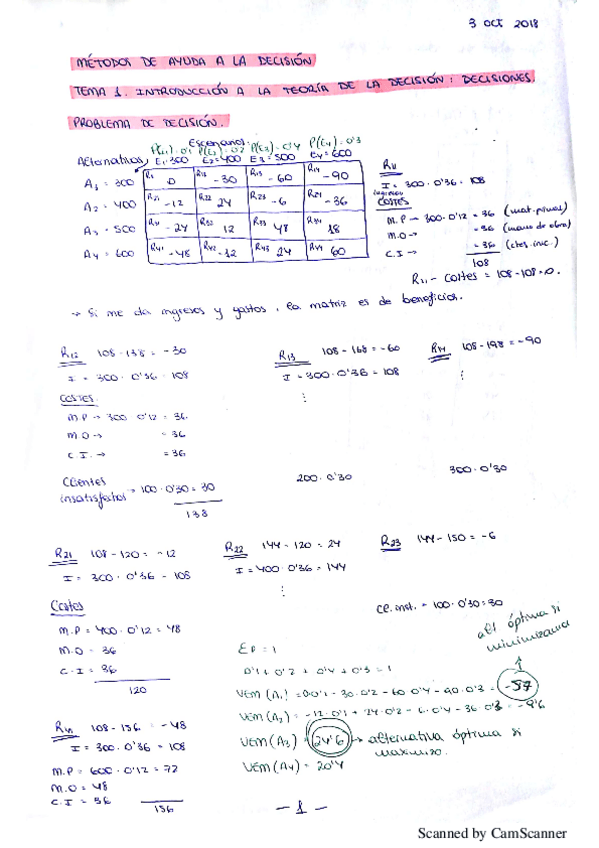 3 OCT 2018
MÉTODOS DE AYUDA A LA DECISIÓN
TEMA 1. INTRODUCCIÓN A LA TEORÍA DE LA DECISIÓN: DECISIONES.
PROBLEMA DE DECISIÓN.
Escenarios
P(E1)=0'1 P(E2)=0'2 P(E3)=0'4 P(E4)=0'3
Alternativas E1=300 E2=400 E3=500 E4=600
A1 = 300 R11 0 R12 -30 R13 -60 R14 -90
A2 = 400 R21 -12 R22 24 R23 -6 R24 -36
A3 = 500 R31 -24 R32 12 R33 48 R34 18
A4 = 600 R41 -48 R42 -12 R43 24 R44 60
R11
I = 300 · 0'36 = 108
ingresos
COSTES
M.P → 300 · 0'12 = 36 (mat. primas)
M.O → = 36 (mano de obra)
C.I → = 36 (ctes. inc.)
108
R11 - costes = 108 - 108 = 0.
→ Si me da ingresos y gastos, la matriz es de beneficios.
R12 108 - 138 = -30
I = 300 · 0'36 = 108
COSTES
M.P → 300 · 0'12 = 36
M.O → = 36
C.I. → = 36
Clientes insatisfechos = 100 · 0'30 = 30
138
R13 108 - 168 = -60
I = 300 · 0'36 = 108
⋮
200 · 0'30
R14 108 - 198 = -90
⋮
300 · 0'30
R21 108 - 120 = -12
I = 300 · 0'36 = 108
Costes
M.P = 400 · 0'12 = 48
M.O = 36
C.I = 36
120
R22 144 - 120 = 24
I = 400 · 0'36 = 144
⋮
R23 144 - 150 = -6
Cl. inst. = 100 · 0'30 = 30
108 - 156 = -48
I = 300 · 0'36 = 108
M.P = 600 · 0'12 = 72
M.O = 48
C.I = 36
156
Ep = 1
0'1 + 0'2 + 0'4 + 0'3 = 1
VEM (A1) = 0·0'1 - 30·0'2 - 60·0'4 - 90·0'3 = -57
alt óptima si minimizara
VEM (A2) = -12·0'1 + 24·0'2 - 6·0'4 - 36·0'3 = -9'6
VEM (A3) = 24'6 → alternativa óptima si maximizo.
VEM (A4) = 20'4
- 1 -
Scanned by CamScanner